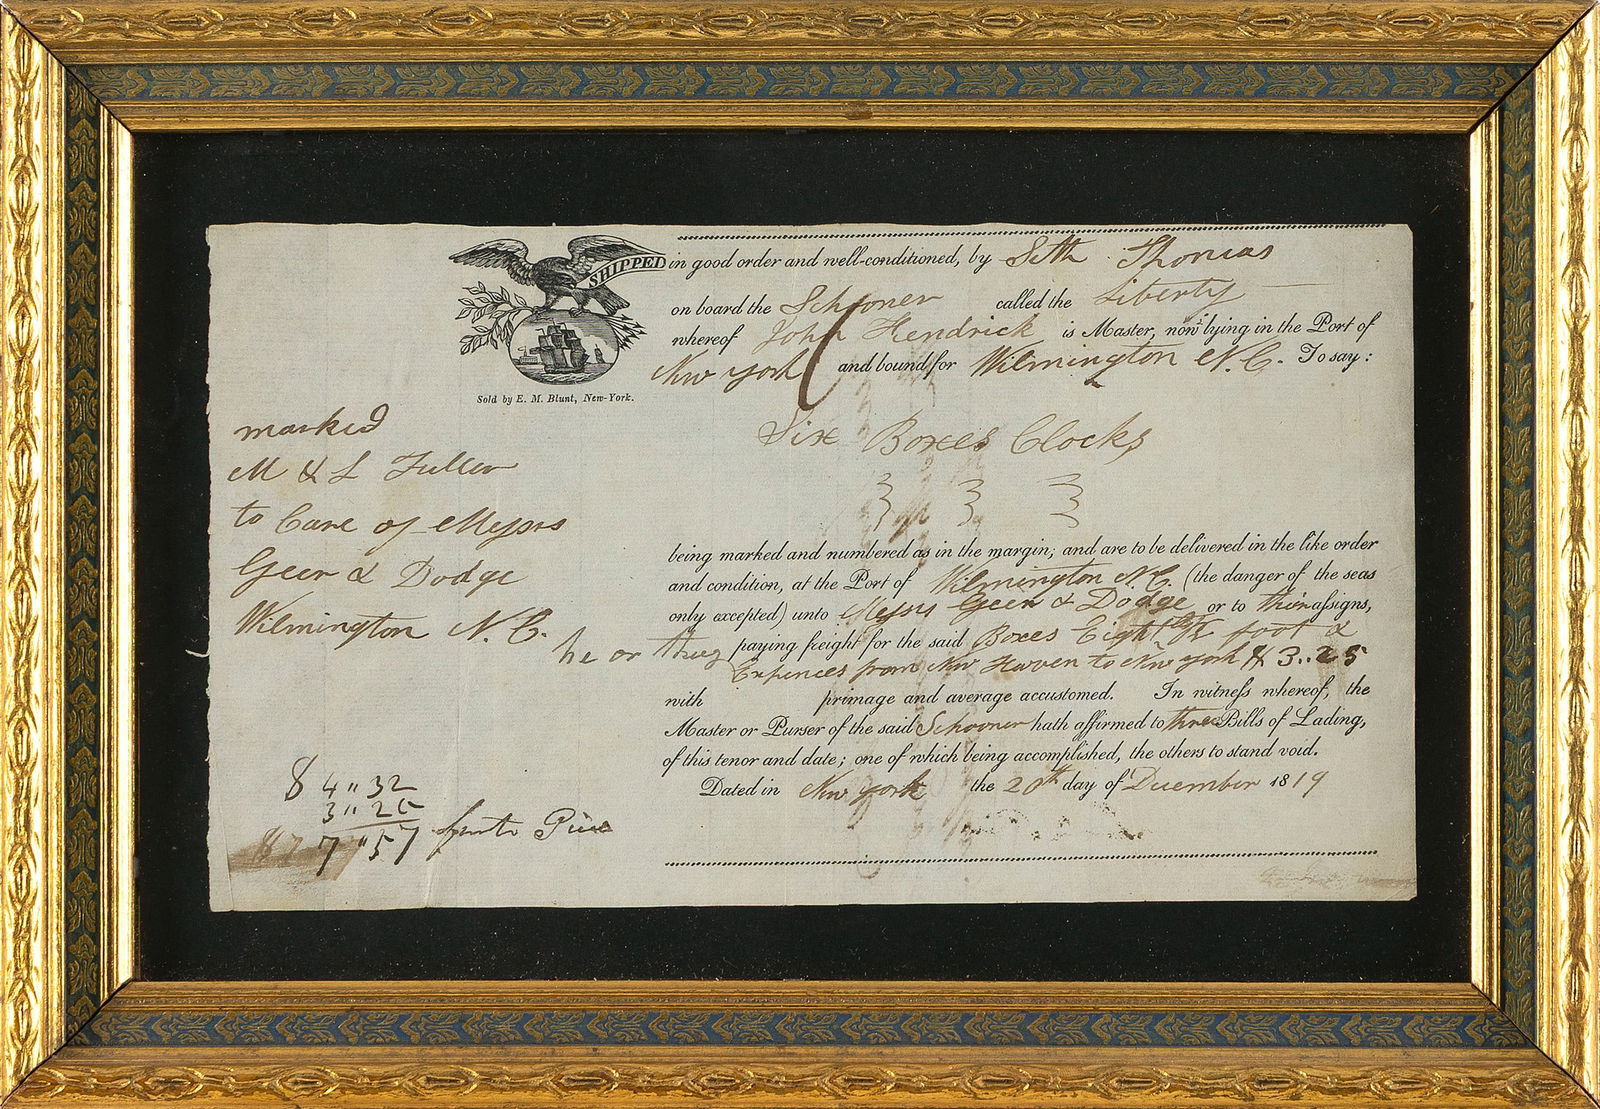 SHIPPED in good order and well-conditioned, by Seth Thomas
on board the Schooner called the Liberty
whereof John Hendrick is Master, now lying in the Port of
New York and bound for Wilmington N.C. To say:
Sold by E. M. Blunt, New-York.
Six Boxes Clocks
marked
M & L Fuller
to Care of Messrs
Geer & Dodge
Wilmington N.C.
being marked and numbered as in the margin; and are to be delivered in the like order
and condition, at the Port of Wilmington N.C. (the danger of the seas
only excepted) unto Messrs Geer & Dodge or to their assigns,
he or they paying freight for the said Boxes Eight foot &
Expences from New Haven to New York $ 3..25
with primage and average accustomed. In witness whereof, the
Master or Purser of the said Schooner hath affirmed to three Bills of Lading,
of this tenor and date; one of which being accomplished, the others to stand void.
Dated in New York the 20th day of December 1819
$ 4" 32
3" 25
7" 57